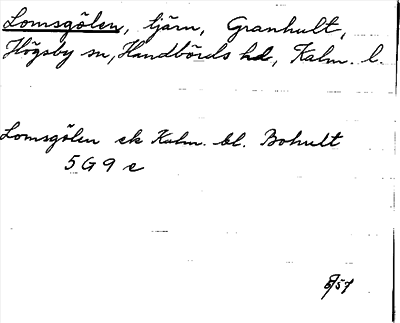 Lomsgölen, tjärn, Granhult,
Högsby sn, Handbörds hd, Kalm. l.
Lomsgölen ek Kalm. bl. Bohult
5 G 9 e